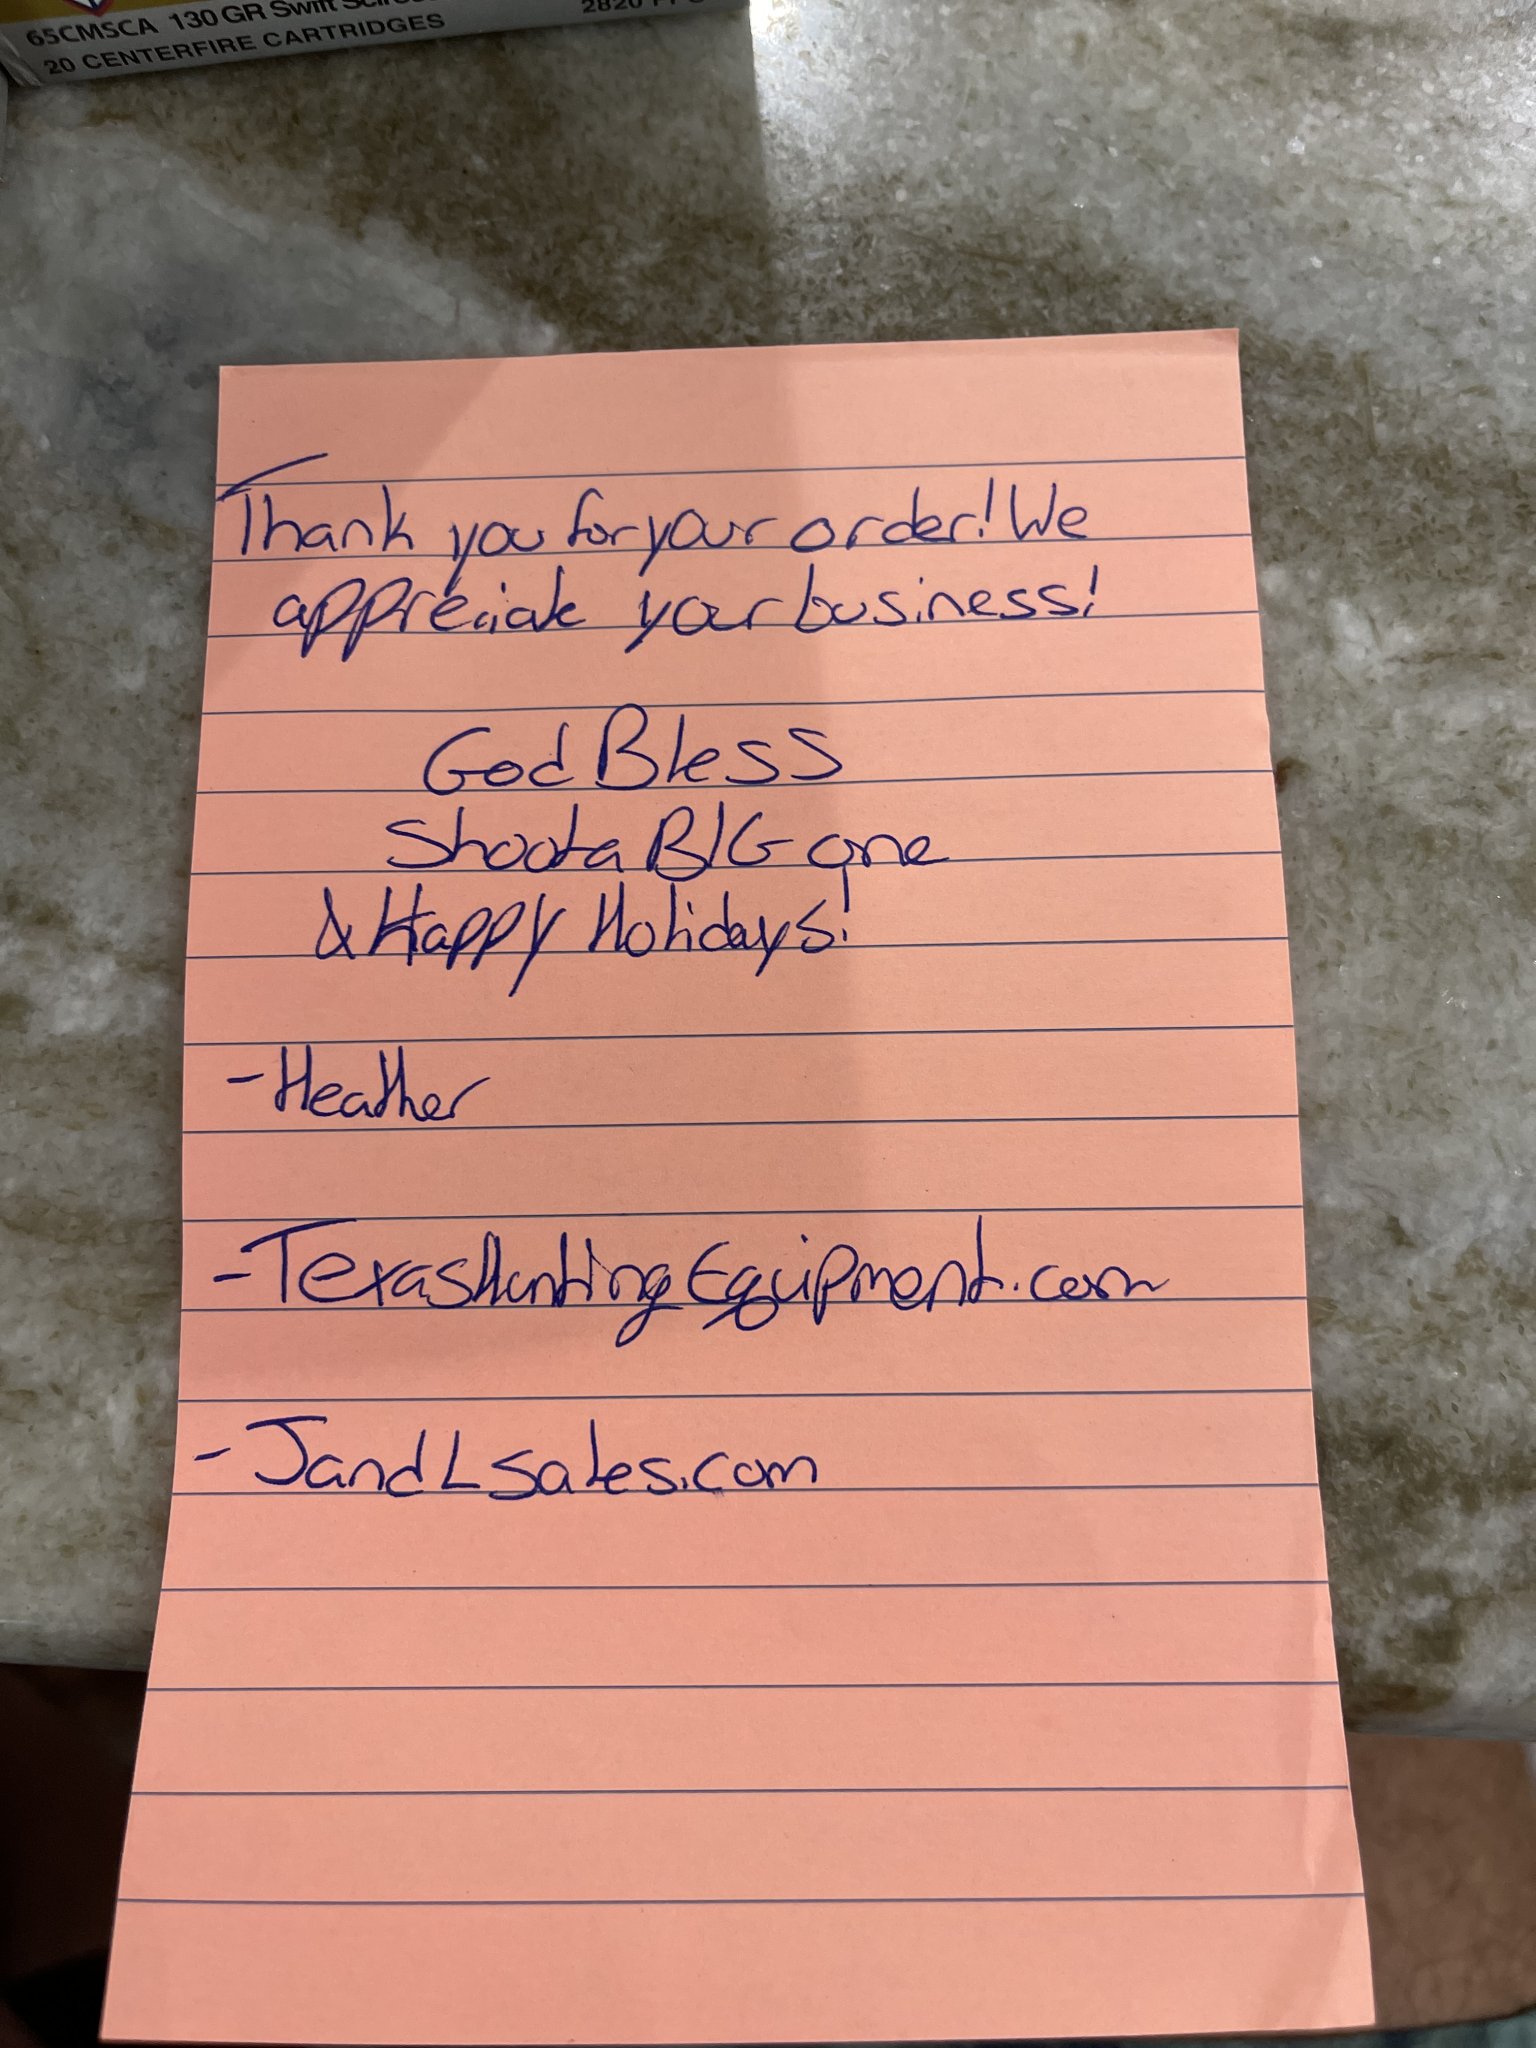 65CMSCA 130 GR Swift
20 CENTERFIRE CARTRIDGES
2820
Thank you for your order! We
appreciate your business!
God Bless
Shoot a BIG one
& Happy Holidays!
- Heather
- TexasHuntingEquipment.com
- JandLsales.com